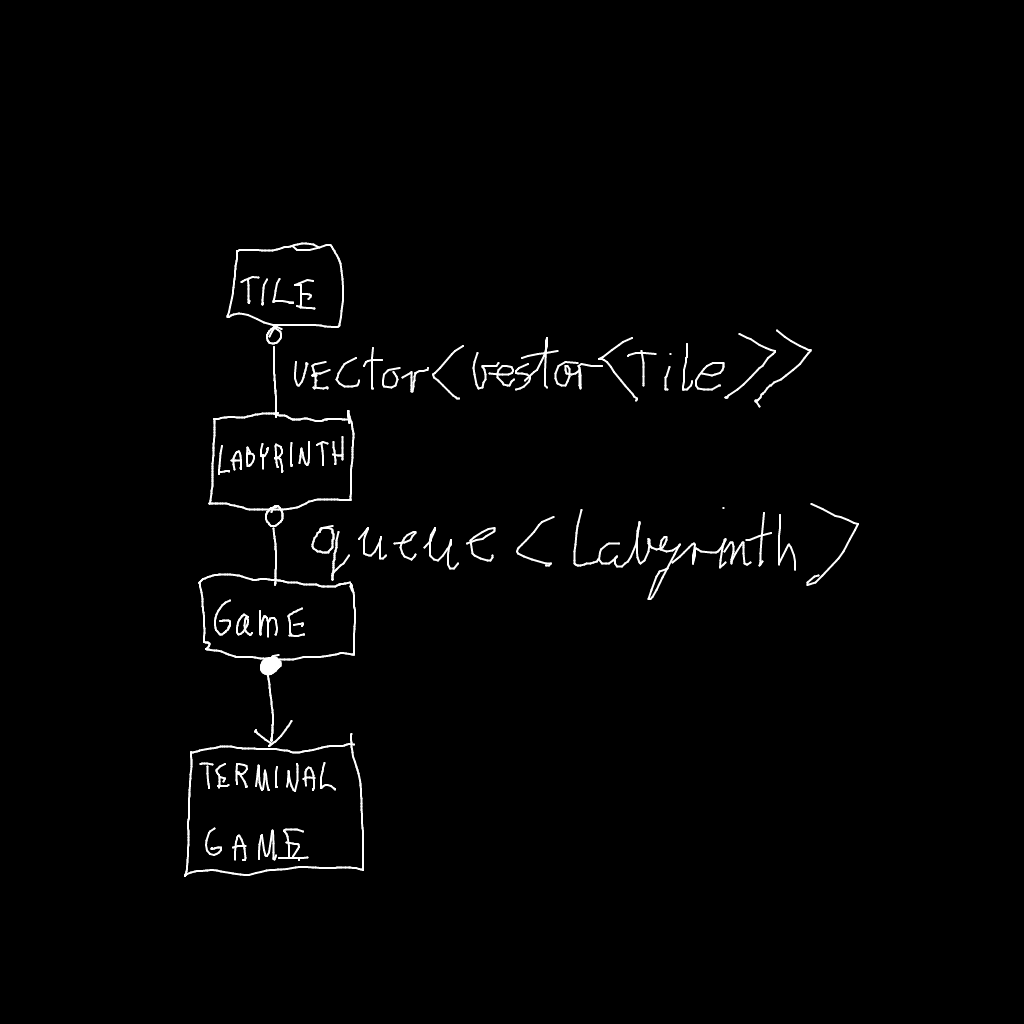 TILE
VECtor<vestor<Tile>>
LABYRINTH
queue<Labyrinth>
GamE
TERMINAL
GAME